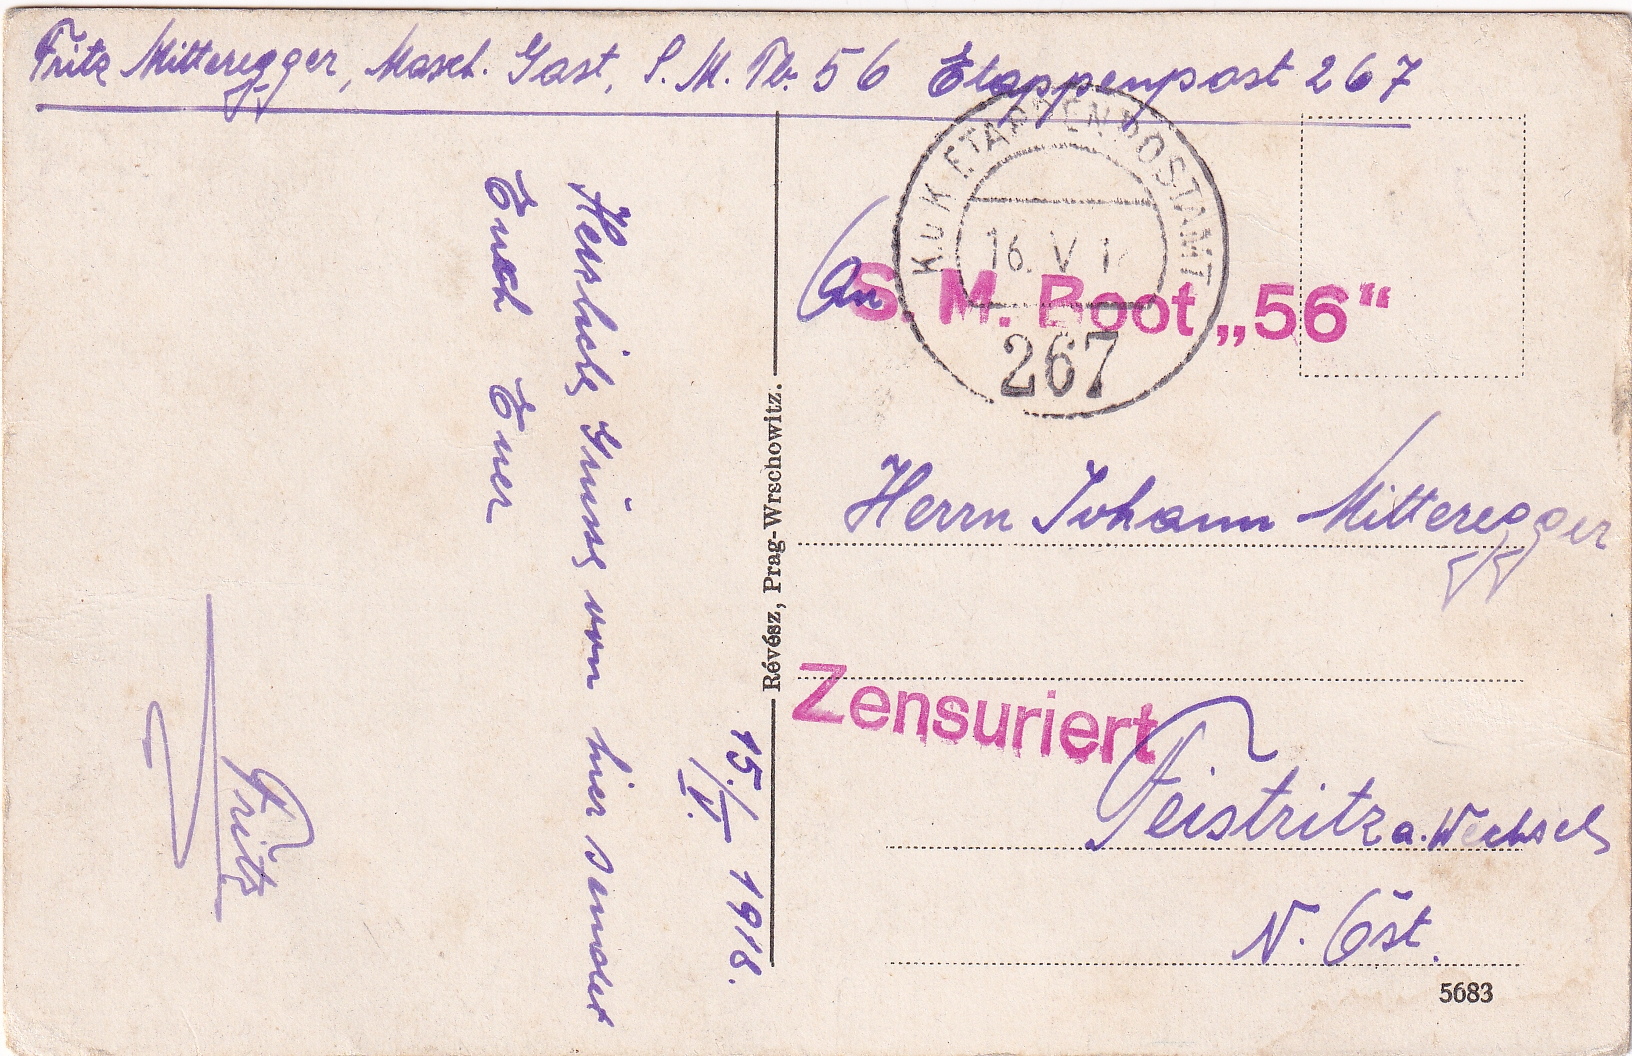 Fritz Mitteregger, Masch. Gast, S. M. Tb. 56 Etappenpost 267
K.u.K. ETAPPENPOSTAMT
16. V 1
267
An
S. M. Boot „56“
Herrn Johann Mitteregger
Zensuriert
Feistritz a. Wechsel
N. Öst.
5683
Révész, Prag-Wrschowitz.
15./V. 1918.
Herzliche Grüsse von hier sendet
Euch Euer
Fritz